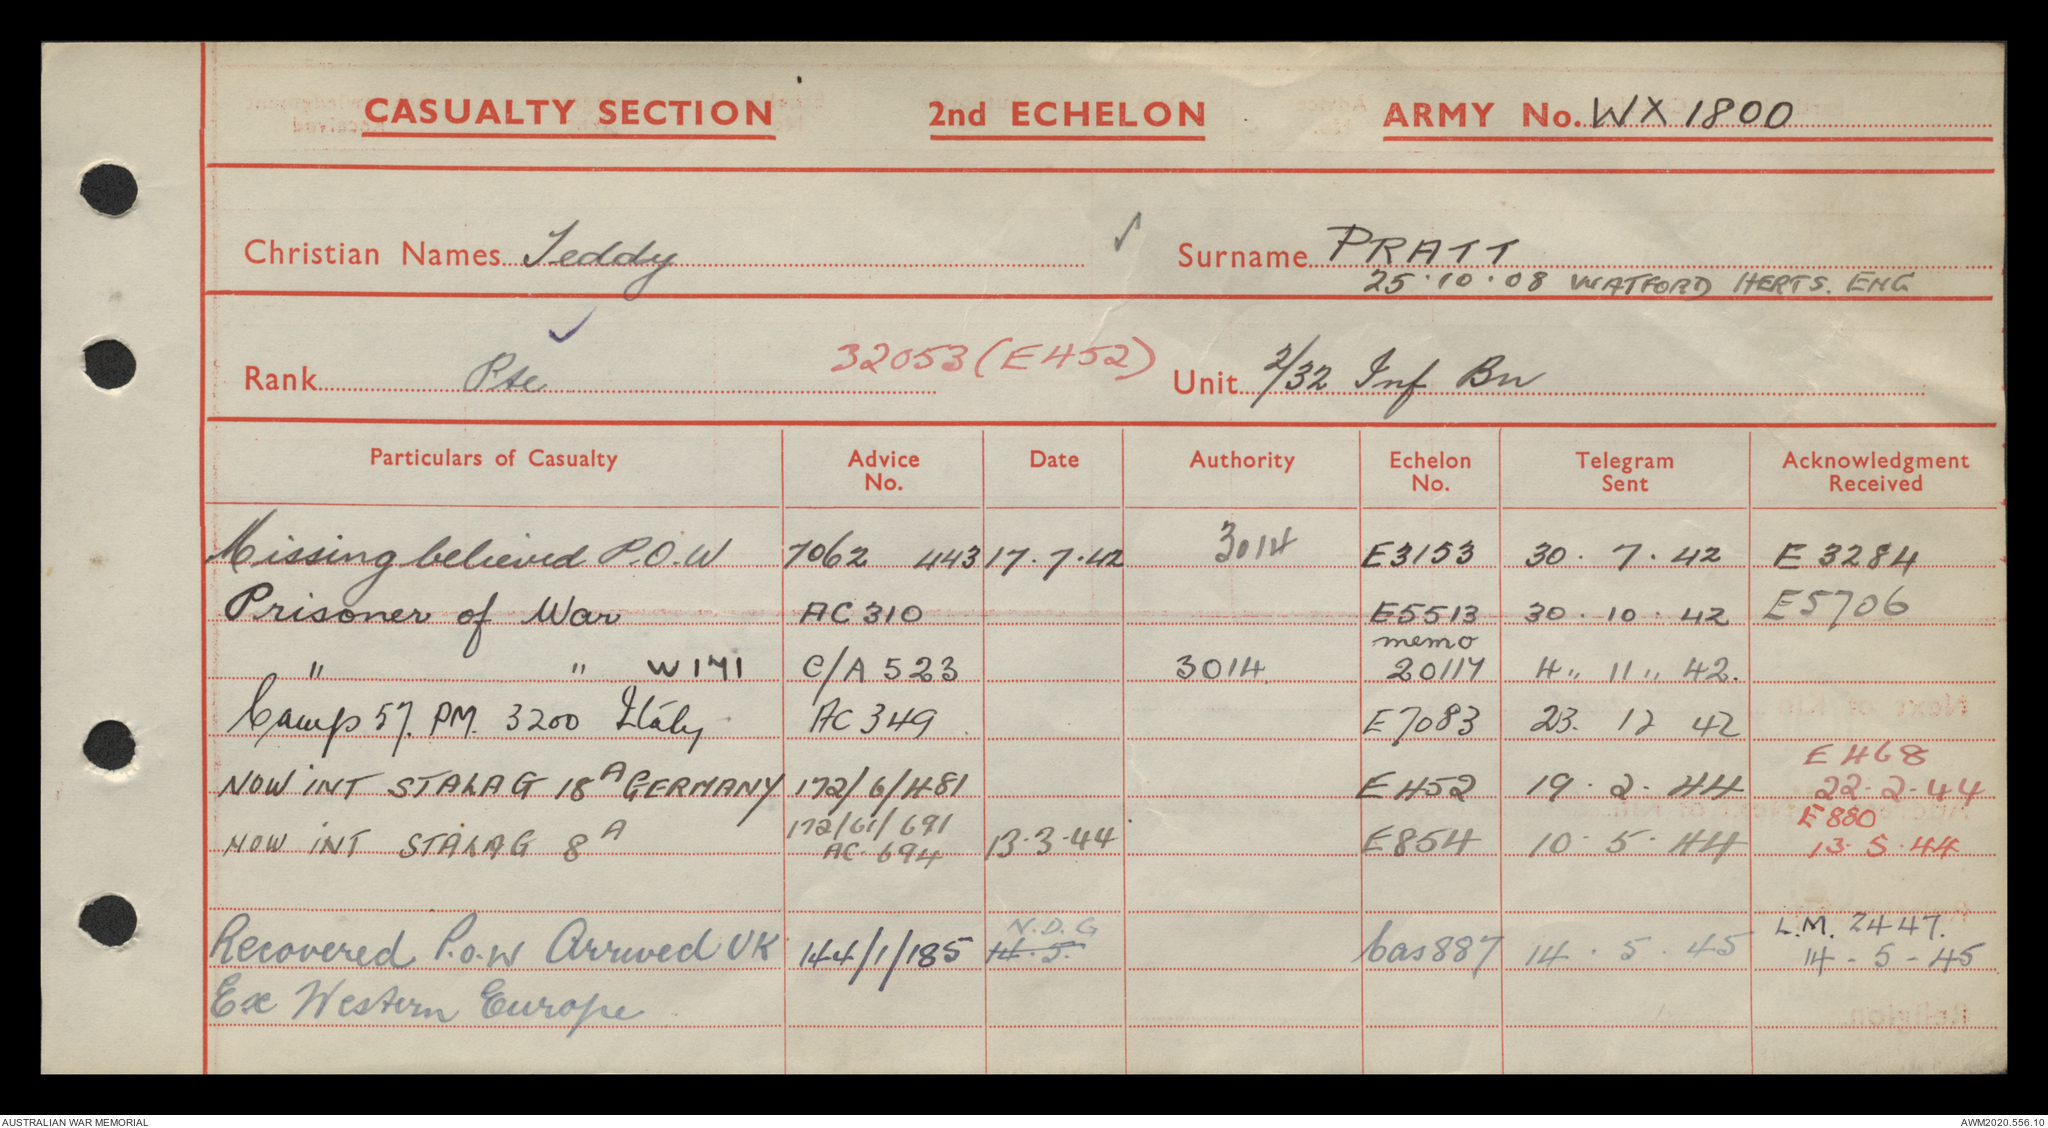 CASUALTY SECTION 2nd ECHELON ARMY No. WX 1800
Christian Names Teddy Surname PRATT
25.10.08 WATFORD HERTS. ENG
Rank Pte 32053 (E452) Unit 2/32 Inf Bn
Particulars of Casualty Advice No. Date Authority Echelon No. Telegram Sent Acknowledgment Received
Missing believed P.O.W 7062 443 17.7.42 3014 E3153 30.7.42 E 3284
Prisoner of War AC 310 E5513 30.10.42 E5706
" " W171 C/A 523 3014 memo 20117 4" 11" 42.
Camp 57. PM. 3200 Italy AC 349 E7083 23. 12 42
NOW INT STALAG 18A GERMANY 172/6/481 E452 19.2.44 E 468 22.2.44
NOW INT STALAG 8A 172/61/691 AC 694 13.3.44 E854 10.5.44 E880 13.5.44
Recovered P.O.W Arrived UK 144/1/185 N.D.G 14.5. Cas 887 14.5.45 L.M. 2447. 14-5-45
Ex Western Europe
AUSTRALIAN WAR MEMORIAL AWM2020.556.10